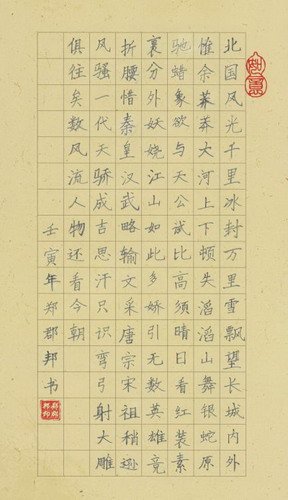 北国风光千里冰封万里雪飘望长城内外
惟余莽莽大河上下顿失滔滔山舞银蛇原
驰蜡象欲与天公试比高须晴日看红装素
裹分外妖娆江山如此多娇引无数英雄竞
折腰惜秦皇汉武略输文采唐宗宋祖稍逊
风骚一代天骄成吉思汗只识弯弓射大雕
俱往矣数风流人物还看今朝
壬寅年郑郡邦书